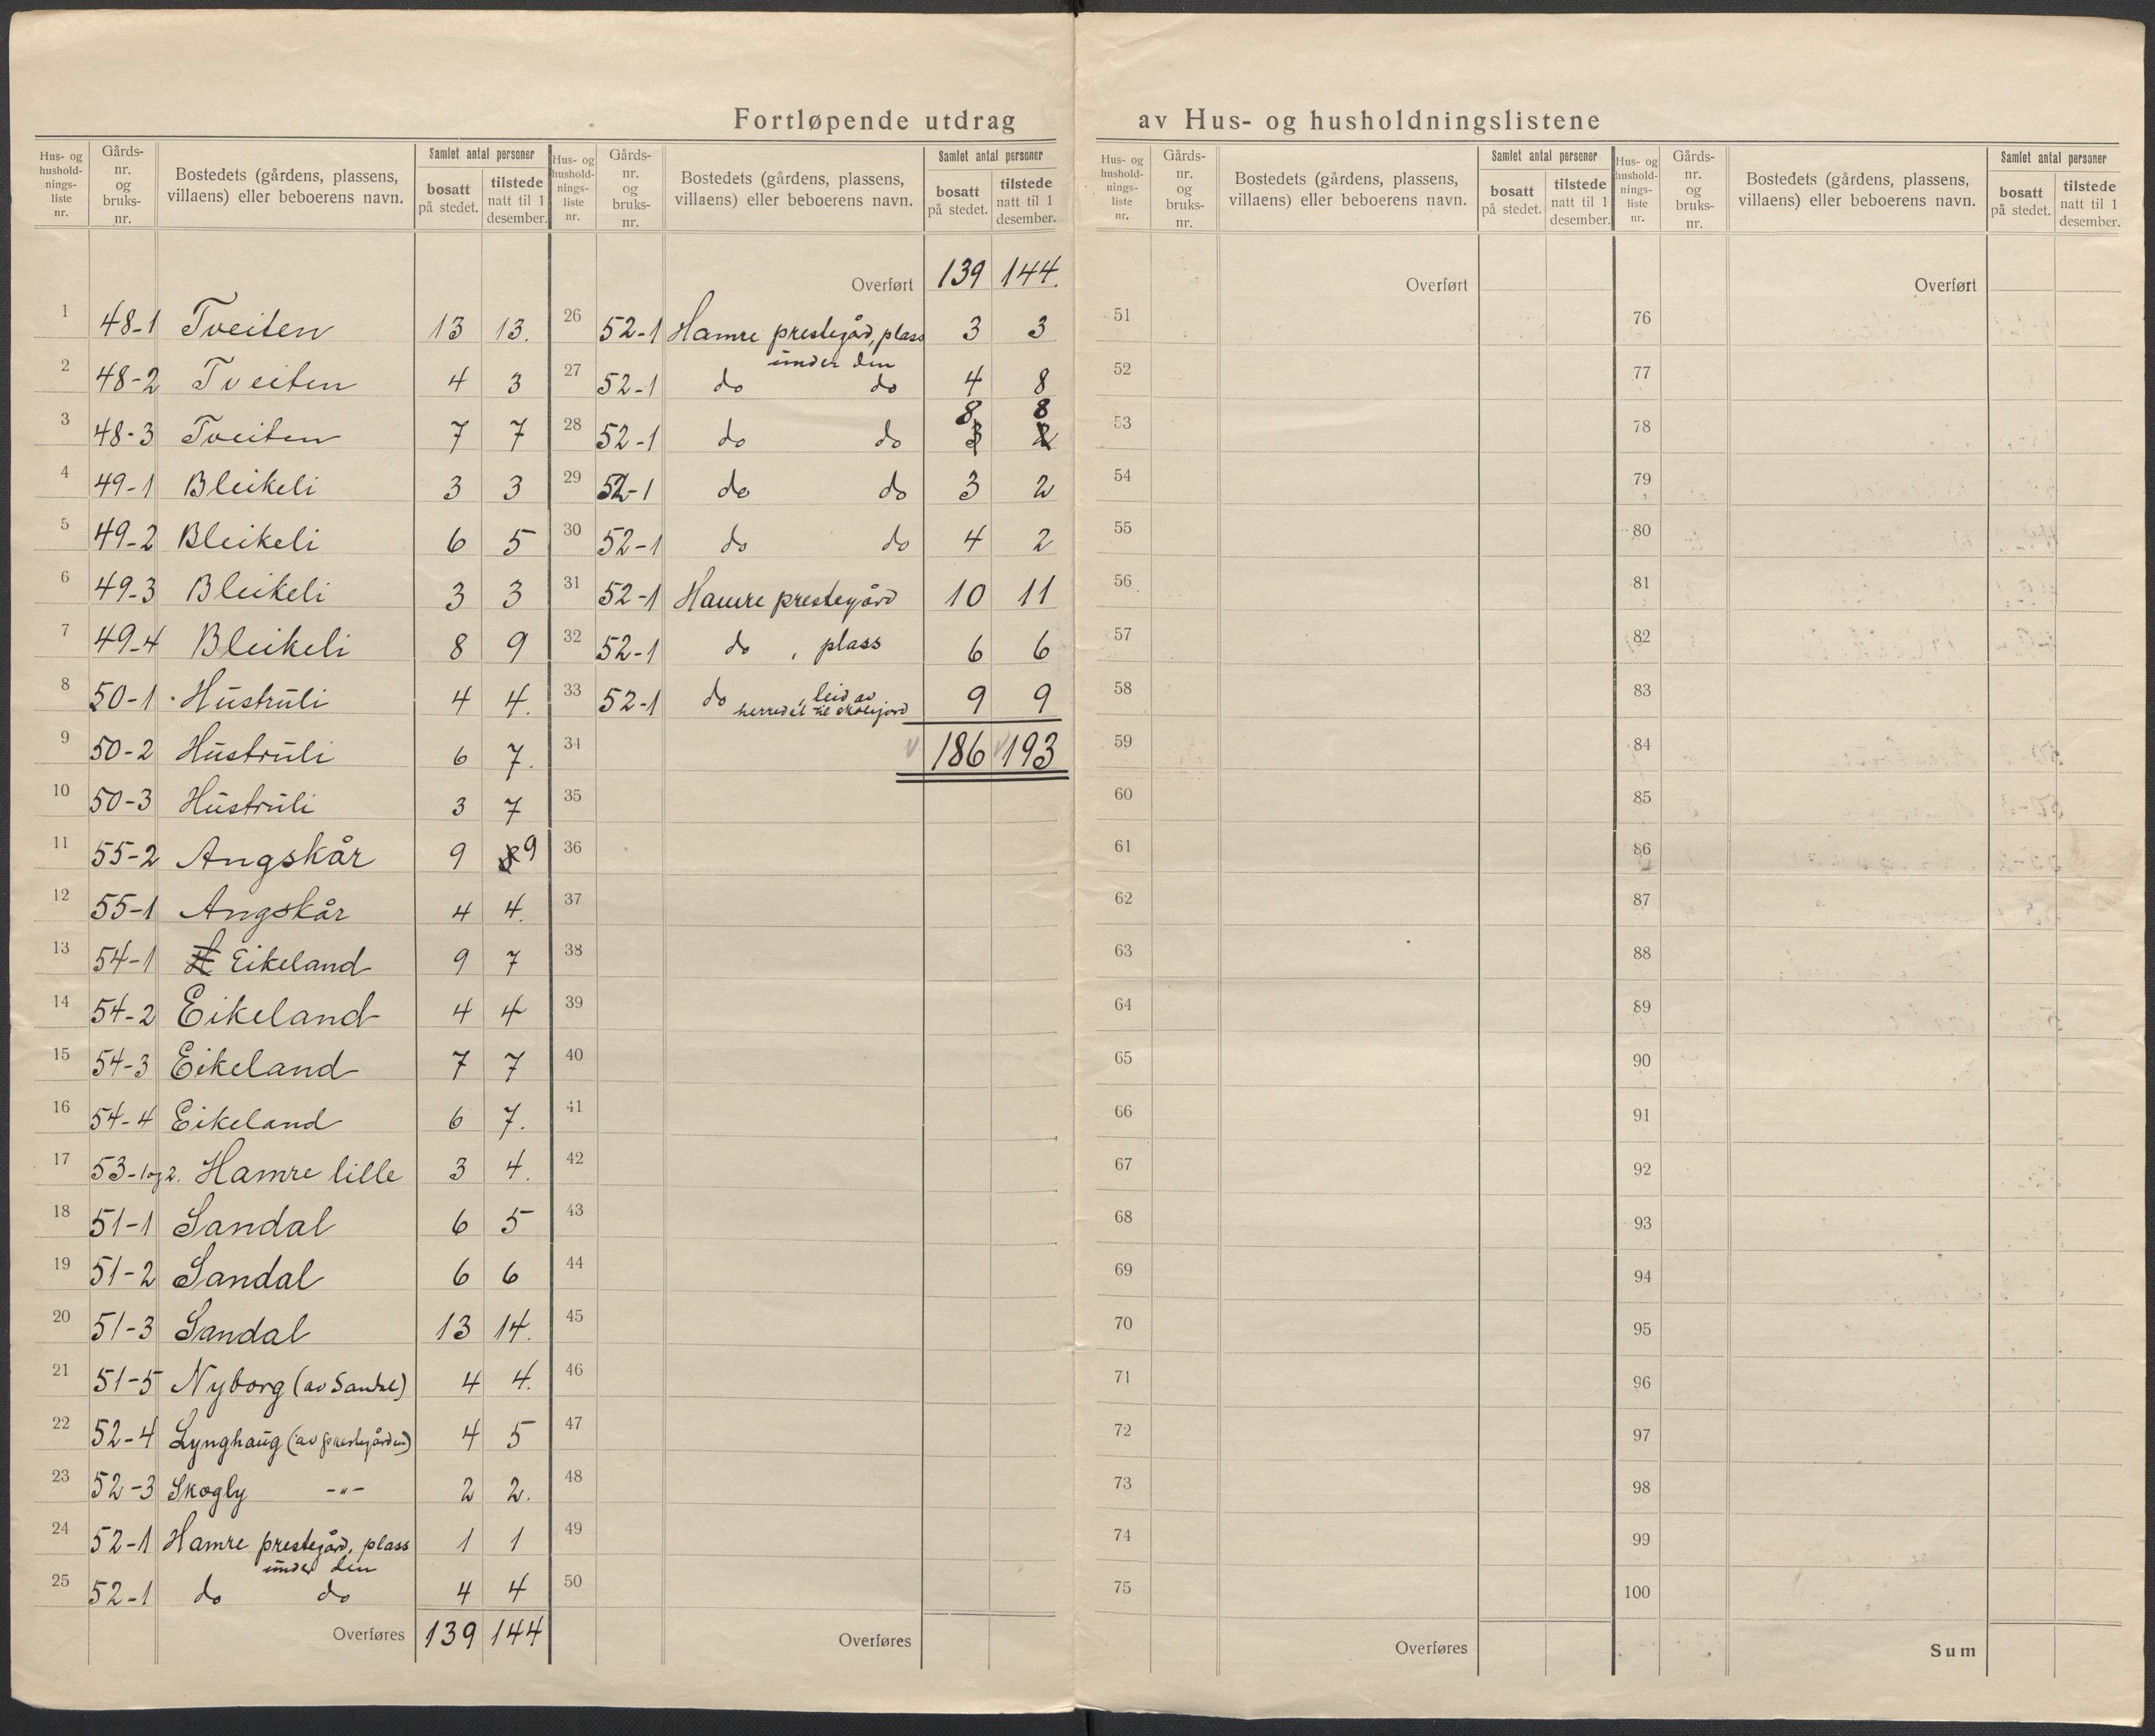 Fortløpende utdrag av Hus- og husholdningslistene
Hus- og hushold-nings-liste nr. Gårds-nr. og bruks-nr. Bostedets (gårdens, plassens, villaens) eller beboerens navn. Samlet antal personer bosatt på stedet. tilstede natt til 1 desember.
1 48-1 Tveiten 13 13.
2 48-2 Tveiten 4 3
3 48-3 Tveiten 7 7
4 49-1 Bleikeli 3 3
5 49-2 Bleikeli 6 5
6 49-3 Bleikeli 3 3
7 49-4 Bleikeli 8 9
8 50-1 Hustruli 4 4.
9 50-2 Hustruli 6 7.
10 50-3 Hustruli 3 7
11 55-2 Angskår 9 8 9
12 55-1 Angskår 4 4.
13 54-1 Eikeland 9 7
14 54-2 Eikeland 4 4
15 54-3 Eikeland 7 7
16 54-4 Eikeland 6 7.
17 53-1og2. Hamre lille 3 4.
18 51-1 Sandal 6 5
19 51-2 Sandal 6 6
20 51-3 Sandal 13 14.
21 51-5 Nyborg (av Sandal) 4 4.
22 52-4 Lynghaug (av prestegården) 4 5
23 52-3 Skogly -"- 2 2.
24 52-1 Hamre prestegård, plass 1 1
under den
25 52-1 do do 4 4
Overføres 139 144
Hus- og hushold-nings-liste nr. Gårds-nr. og bruks-nr. Bostedets (gårdens, plassens, villaens) eller beboerens navn. Samlet antal personer bosatt på stedet. tilstede natt til 1 desember.
Overført 139 144.
26 52-1 Hamre prestegård, plass 3 3
under den
27 52-1 do do 4 8
8 8
28 52-1 do do
29 52-1 do do 3 2
30 52-1 do do 4 2
31 52-1 Hamre prestegård 10 11
32 52-1 do , plass 6 6
33 52-1 do , leid av 9 9
herredet til skolejord
34 186 193
35
36
37
38
39
40
41
42
43
44
45
46
47
48
49
50
Overføres
Hus- og hushold-nings-liste nr. Gårds-nr. og bruks-nr. Bostedets (gårdens, plassens, villaens) eller beboerens navn. Samlet antal personer bosatt på stedet. tilstede natt til 1 desember.
Overført
51
52
53
54
55
56
57
58
59
60
61
62
63
64
65
66
67
68
69
70
71
72
73
74
75
Overføres
Hus- og hushold-nings-liste nr. Gårds-nr. og bruks-nr. Bostedets (gårdens, plassens, villaens) eller beboerens navn. Samlet antal personer bosatt på stedet. tilstede natt til 1 desember.
Overført
76
77
78
79
80
81
82
83
84
85
86
87
88
89
90
91
92
93
94
95
96
97
98
99
100
Sum